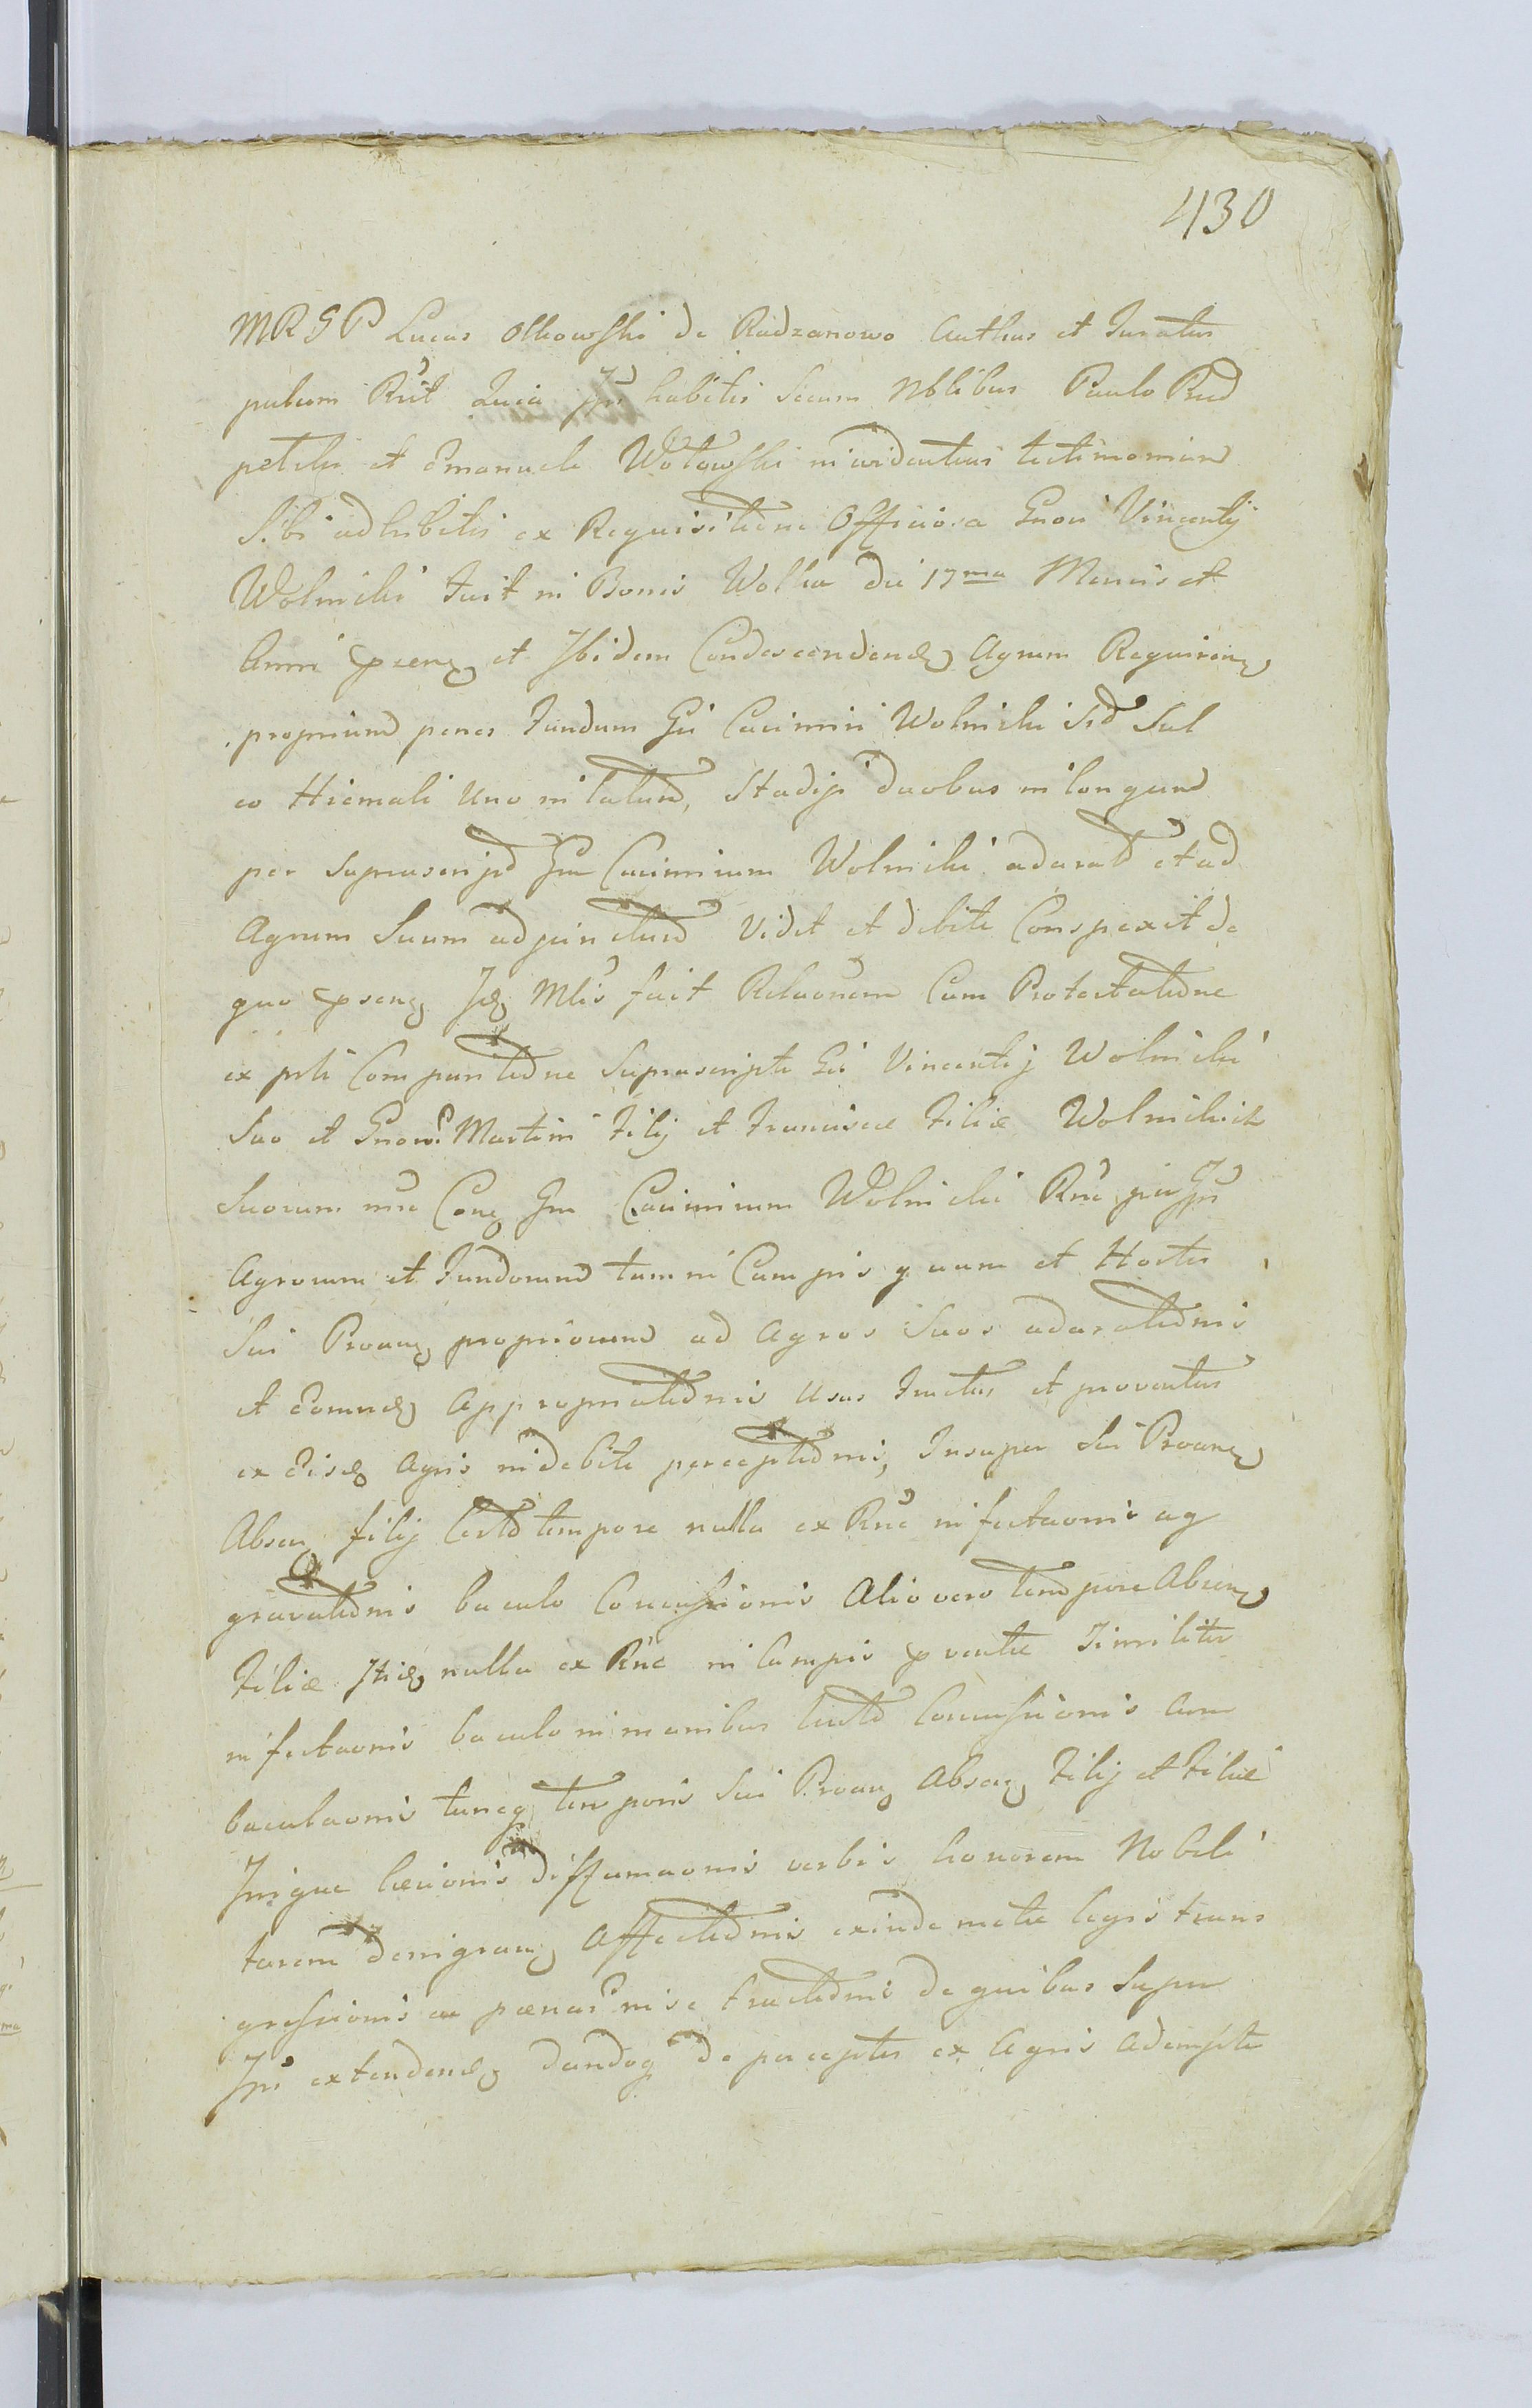 430
MRGP Lucas Olkowski de Radzanowo Authus et Juratus
palam Rūt Quia Jpē habitis secum Nblibus Paulo Rud
petelis et Emanuele Wołowski in evidentius testimonium
Sibi adhibitis ex Requisitione Officiosa Gnosi Vincentij
Wolnicki fuit in Bonis Wolka die 17ma Mensis et
Anni prsenz et Ibidem Condescendendz Agrum Requirenz
proprium penes fundum Gsi Casimiri Wolnicki Srd Sul
co Hiemali Uno in latum, Stadijs duobus in longum
per suprascriptd Gm Casimirum Wolnicki adaratd et ad
Agrum Suum adjunctum Videt et debite Conspexit de
quo prsenz Jdz Mlis fecit Relaonem Cum Protestatione
ex prti Comparitione Suprascripti Gsi Vincentij Wolnicki
Suo et Gnorū Martini filij et Francisca filiæ Wolnickich
Suorum nne Conz Gm Casimirum Wolnicki Rne
Agrorum et Fundorum tam in Campis quam et Hortis
Sui Proanz propriorum ad Agros Suos adarationis
et Eorundz Appropriationis Usus fructus et proventus
ex Eisdz Agris indebite perceptionis, Insuper Sui Proanz
Absenz filij certo tempore nulla ex Rne infestaonis ag
gravationis baculo Concussionis Alio vero tempore Absenz
filiæ Itidz nulla ex Rne in Campis pventæ Similiter
infestaonis baculo in manibus Concussionis Cum
baculaonis tuncq temporis Sui Proanz Absenz filij et filiæ
Inique læsionis diffamaonis verbis honorem Nobili
tarem denigranz Affectionis exinde metu legis trans
gressionis ac pœnas in se tractionis de quibus Super
Jpē extendendz dandoq de perceptis ex Agris Ademptis